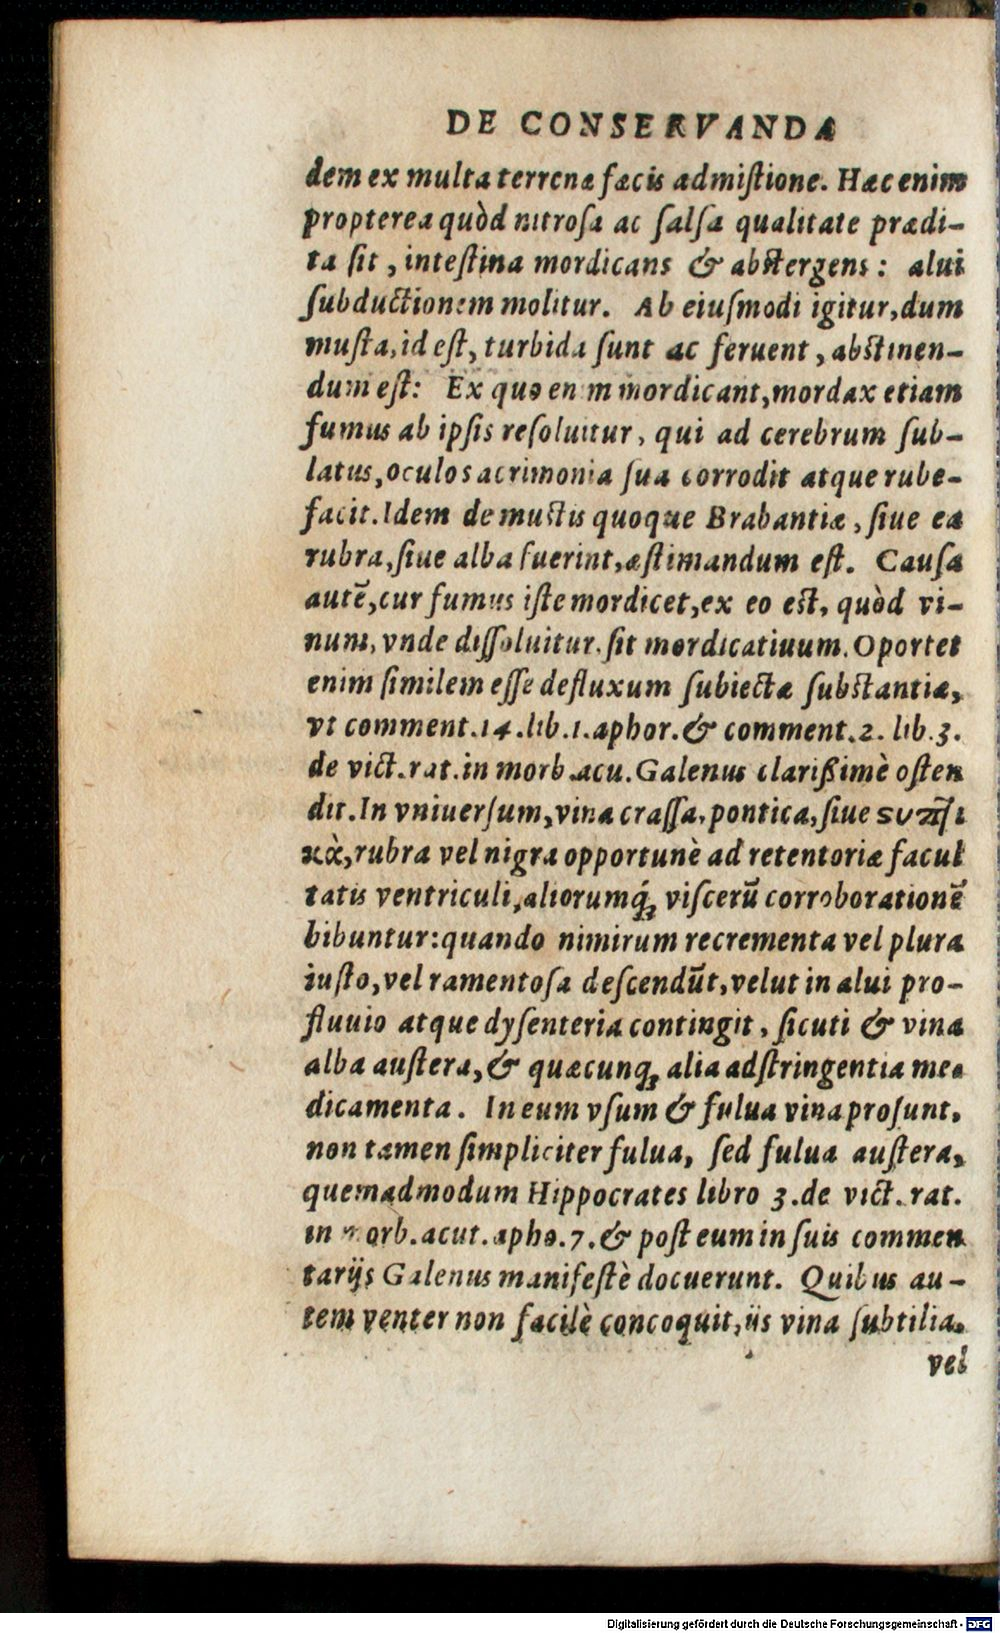 DE CONSERVANDA
dem ex multa terrenæ fæcis admiſtione. Hæc enim
propterea quòd nitroſa ac ſalſa qualitate prædi-
ta ſit, inteſtina mordicans & abſtergens: alui
ſubductionem molitur. Ab eiuſmodi igitur, dum
muſta, id eſt, turbida ſunt ac feruent, abſtinen-
dum eſt: Ex quo enim mordicant, mordax etiam
fumus ab ipſis reſoluitur, qui ad cerebrum ſub-
latus, oculos acrimonia ſua corrodit atque rube-
facit. Idem de muſtis quoque Brabantiæ, ſiue ea
rubra, ſiue alba fuerint, æſtimandum eſt. Cauſa
autē, cur fumus iſte mordicet, ex eo eſt, quòd vi-
num, vnde diſſoluitur, ſit mordicatiuum. Oportet
enim ſimilem eſſe defluxum ſubiectæ ſubſtantiæ,
vt comment. 14. lib. 1. aphor. & comment. 2. lib. 3.
de vict. rat. in morb. acu. Galenus clarißimè oſten
dit. In vniuerſum, vina craſſa, pontica, ſiue
rubra vel nigra opportunè ad retentoriæ facul
tatis ventriculi, aliorumq́; viſcerū corroborationē
bibuntur: quando nimirum recrementa vel plura
iuſto, vel ramentoſa deſcendūt, velut in alui pro-
fluuio atque dyſenteria contingit, ſicuti & vina
alba auſtera, & quæcunq; alia adſtringentia me-
dicamenta. In eum vſum & fulua vina proſunt,
non tamen ſimpliciter fulua, ſed fulua auſtera,
quemadmodum Hippocrates libro 3. de vict. rat.
in morb. acut. apho. 7. & poſt eum in ſuis commen
tarijs Galenus manifeſtè docuerunt. Quibus au-
tem venter non facilè concoquit, iis vina ſubtilia,
vel
Digitalisierung gefördert durch die Deutsche Forschungsgemeinschaft - DFG